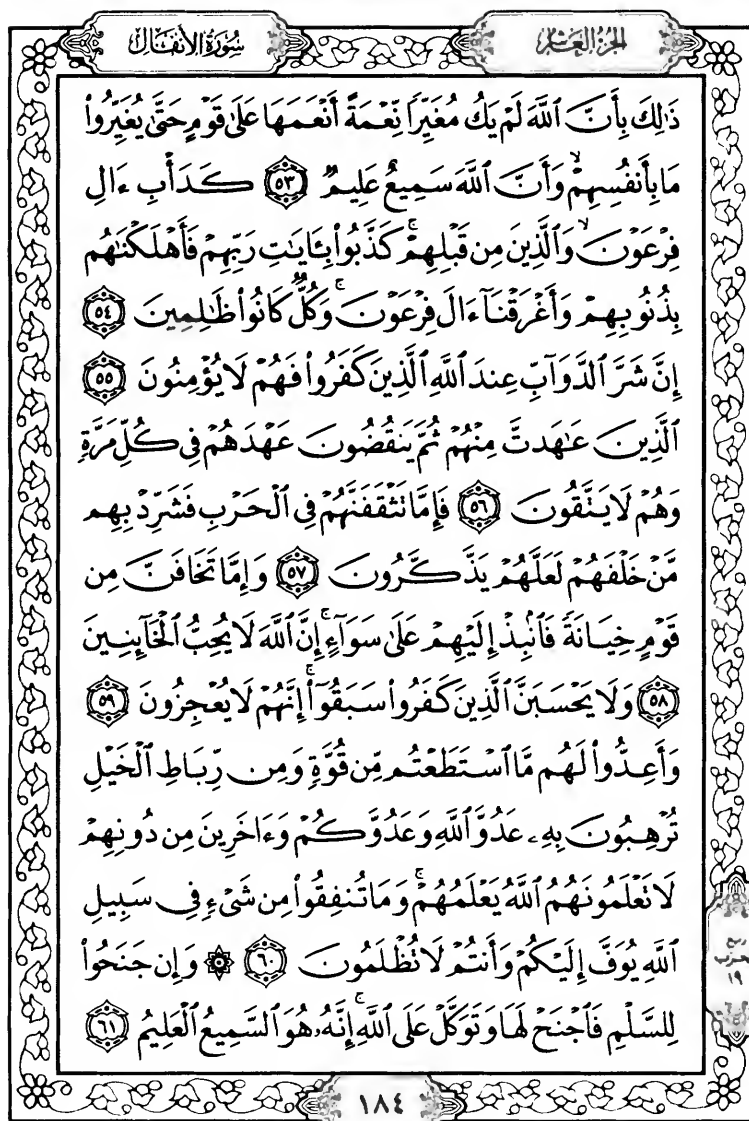 سُورَةُ الأَنفَال
الجُزْءُ العَاشِرُ
ذَٰلِكَ بِأَنَّ ٱللَّهَ لَمْ يَكُ مُغَيِّرًا نِّعْمَةً أَنْعَمَهَا عَلَىٰ قَوْمٍ حَتَّىٰ يُغَيِّرُوا۟
مَا بِأَنفُسِهِمْ ۙ وَأَنَّ ٱللَّهَ سَمِيعٌ عَلِيمٌ ٥٣ كَدَأْبِ ءَالِ
فِرْعَوْنَ ۙ وَٱلَّذِينَ مِن قَبْلِهِمْ ۚ كَذَّبُوا۟ بِـَٔايَٰتِ رَبِّهِمْ فَأَهْلَكْنَٰهُم
بِذُنُوبِهِمْ وَأَغْرَقْنَآ ءَالَ فِرْعَوْنَ ۚ وَكُلٌّ كَانُوا۟ ظَٰلِمِينَ ٥٤
إِنَّ شَرَّ ٱلدَّوَآبِّ عِندَ ٱللَّهِ ٱلَّذِينَ كَفَرُوا۟ فَهُمْ لَا يُؤْمِنُونَ ٥٥
ٱلَّذِينَ عَٰهَدتَّ مِنْهُمْ ثُمَّ يَنقُضُونَ عَهْدَهُمْ فِى كُلِّ مَرَّةٍ
وَهُمْ لَا يَتَّقُونَ ٥٦ فَإِمَّا تَثْقَفَنَّهُمْ فِى ٱلْحَرْبِ فَشَرِّدْ بِهِم
مَّنْ خَلْفَهُمْ لَعَلَّهُمْ يَذَّكَّرُونَ ٥٧ وَإِمَّا تَخَافَنَّ مِن
قَوْمٍ خِيَانَةً فَٱنۢبِذْ إِلَيْهِمْ عَلَىٰ سَوَآءٍ ۚ إِنَّ ٱللَّهَ لَا يُحِبُّ ٱلْخَآئِنِينَ
٥٨ وَلَا يَحْسَبَنَّ ٱلَّذِينَ كَفَرُوا۟ سَبَقُوٓا۟ ۚ إِنَّهُمْ لَا يُعْجِزُونَ ٥٩
وَأَعِدُّوا۟ لَهُم مَّا ٱسْتَطَعْتُم مِّن قُوَّةٍ وَمِن رِّبَاطِ ٱلْخَيْلِ
تُرْهِبُونَ بِهِۦ عَدُوَّ ٱللَّهِ وَعَدُوَّكُمْ وَءَاخَرِينَ مِن دُونِهِمْ
لَا تَعْلَمُونَهُمُ ٱللَّهُ يَعْلَمُهُمْ ۚ وَمَا تُنفِقُوا۟ مِن شَىْءٍ فِى سَبِيلِ
ٱللَّهِ يُوَفَّ إِلَيْكُمْ وَأَنتُمْ لَا تُظْلَمُونَ ٦٠ ۞ وَإِن جَنَحُوا۟
لِلسَّلْمِ فَٱجْنَحْ لَهَا وَتَوَكَّلْ عَلَى ٱللَّهِ ۚ إِنَّهُۥ هُوَ ٱلسَّمِيعُ ٱلْعَلِيمُ ٦١
ربع
الحزب
١٩
١٨٤